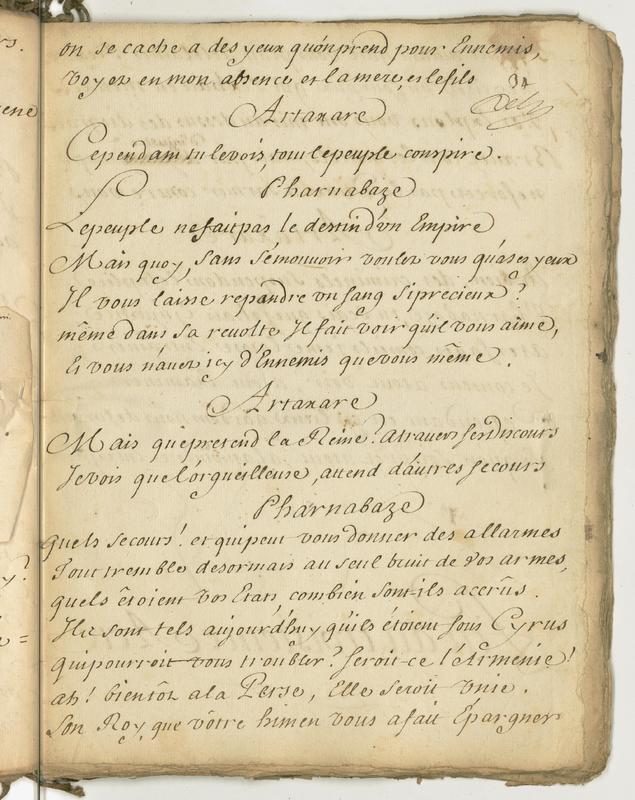 on se cache a des yeux qu'on prend pour Ennemis,
Voyez en mon absence et la mere, et le fils
34
Artaxare
Cependant tu le vois, tout le peuple conspire.
Pharnabaze
Le peuple ne fait pas le destin d'vn Empire
Mais quoy, sans s'émouvoir voulez vous qu'à ses yeux
Il vous laisse repandre vn sang si precieux?
même dans sa revolte Il fait voir qu'il vous aime,
Et vous n'avez icy d'Ennemis que vous même.
Artaxare
Mais que pretend la Reine? a travers ses discours
Je vois que l'orgueilleuse, attend d'autres secours
Pharnabaze
quels secours! et qui peut vous donner des allarmes
Tout tremble desormais au seul bruit de vos armes,
quels étoient vos Etats combien sont-ils accrûs.
Ils sont tels aujourd'huy qu'ils étoient sous Cyrus
qui pourroit vous troubler? seroit-ce l'Armenie!
ah! bientôt a la Perse, Elle seroit vnie.
Son Roy, que vôtre himen vous a fait Épargner